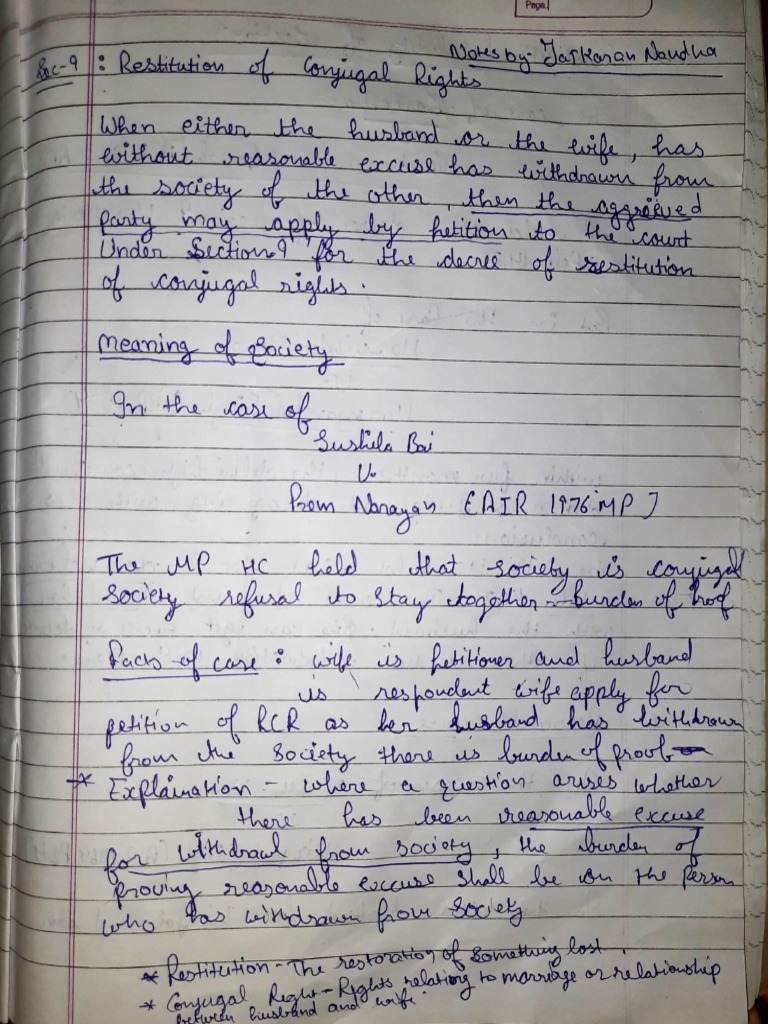 Page.
Notes by: Jaskaran Nandha
Sec-9 : Restitution of Conjugal Rights
When either the husband or the wife, has
without reasonable excuse has withdrawn from
the society of the other, then the aggreived
party may apply by petition to the court
Under Section 9 for the decree of restitution
of conjugal rights.
Meaning of Society
In the case of
Sushila Bai
V.
Prem Narayan [AIR 1976 MP]
The MP HC held that society is conjugal
society refusal to stay together - burden of prof
Facts of case : wife is petitioner and husband
is respondent wife apply for
petition of RCR as her husband has withdrawn
from the society there is burden of proof
* Explaination - where a question arises whether
there has been reasonable excuse
for withdrawl from society, the burden of
proving reasonable excuse shall be on the person
who has withdrawn from society
* Restitution - The restoration of something lost.
* Conjugal Right - Rights relating to marriage or relationship
between husband and wife.